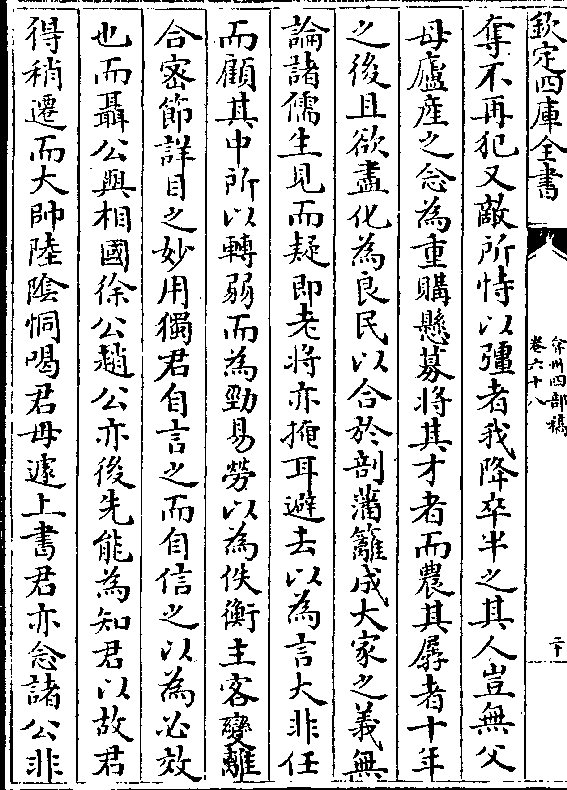 欽定四庫全書
弇州四部稿
卷六十八
二十
奪不再犯又敵所恃以彊者我降卒半之其人豈無父
母廬産之念為重購懸募將其才者而農其孱者十年
之後且欲盡化為良民以合於剖藩籬成大家之義無
論諸儒生見而疑即老將亦掩耳避去以為言大非任
而顧其中所以轉弱而為勁易勞以為佚衡主客變離
合宻節詳目之妙用獨君自言之而自信之以為必效
也而聶公與相國徐公趙公亦後先能為知君以故君
得稍遷而大帥陸陰恫喝君毋遽上書君亦念諸公非